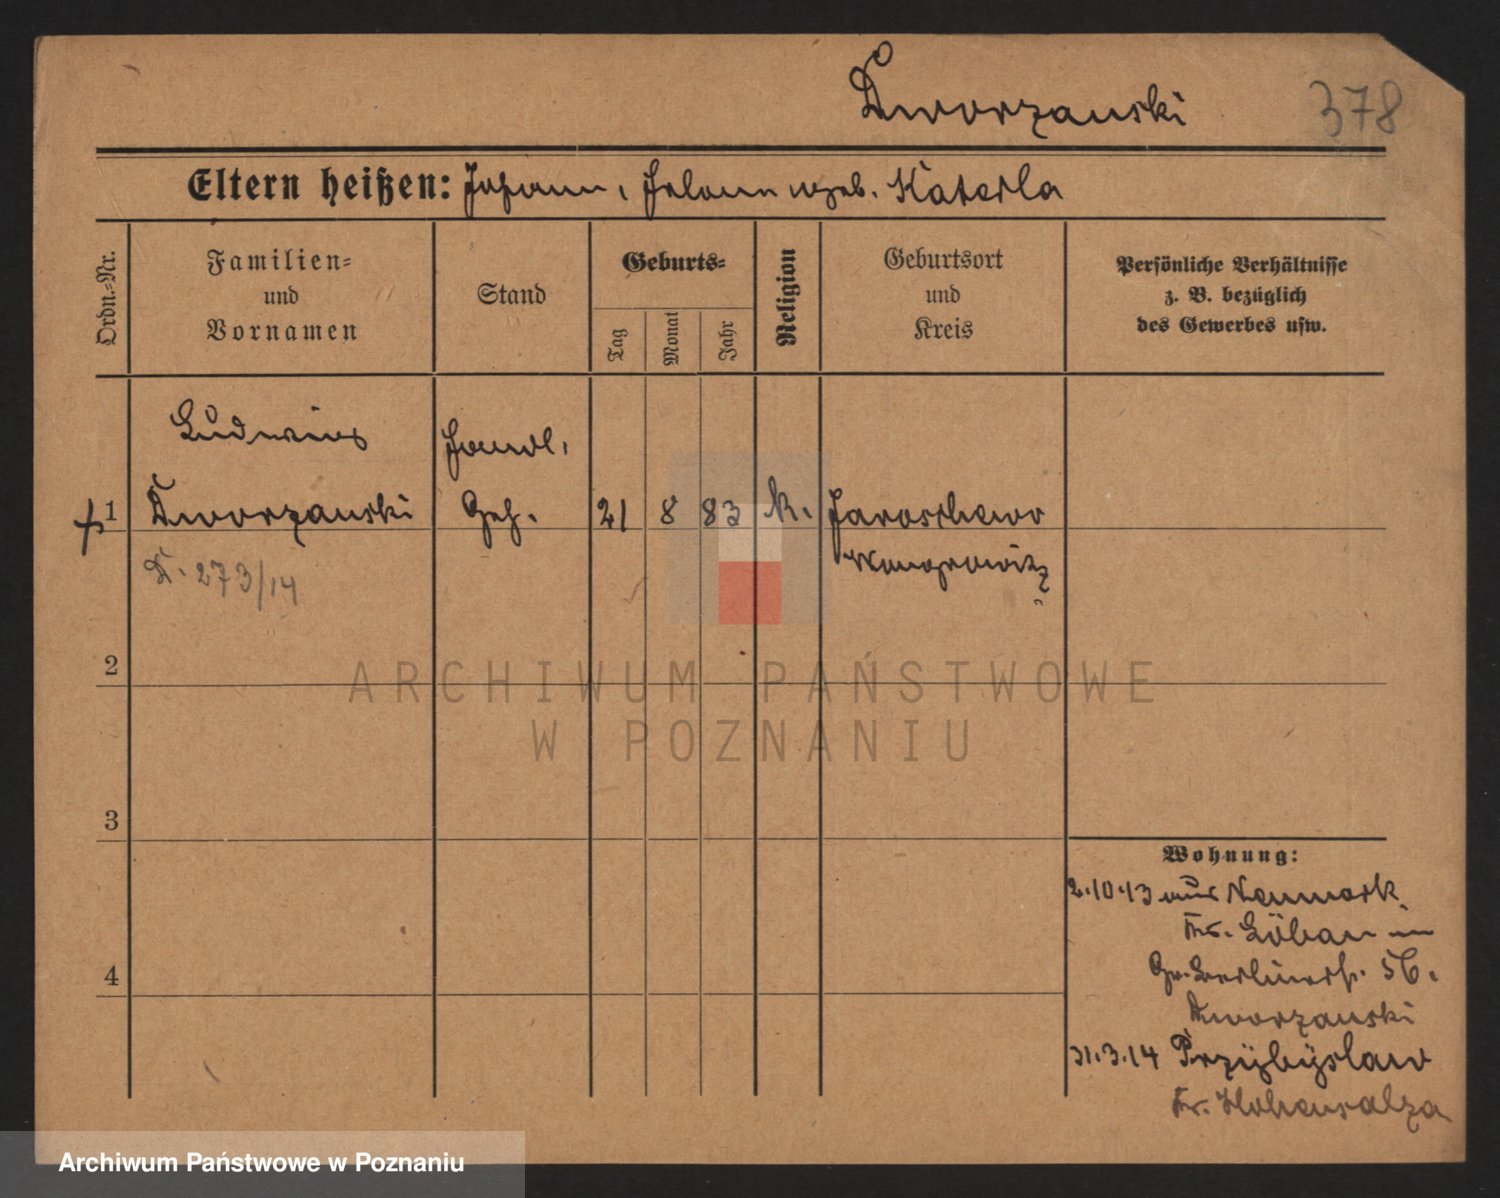 Dworzanski
378
Eltern heißen: Johann, Helene geb. Katerla
Ordn.-Nr.
Familien-
und
Vornamen
Stand
Geburts-
Tag
Monat
Jahr
Religion
Geburtsort
und
Kreis
Persönliche Verhältnisse
z. B. bezüglich
des Gewerbes usw.
Ludwig
Handl.
1
Dworzanski
Geh.
21
8
83
k.
Jaroschewo
Wongrowitz
D. 273/14
2
3
4
Wohnung:
2.10.13 aus Neumark
Kr. Löbau in
Gr. Berlinerstr. 56.
Dworzanski
31.3.14 Przybyslaw
Kr. Hohensalza
ARCHIWUM PAŃSTWOWE
W POZNANIU
Archiwum Państwowe w Poznaniu